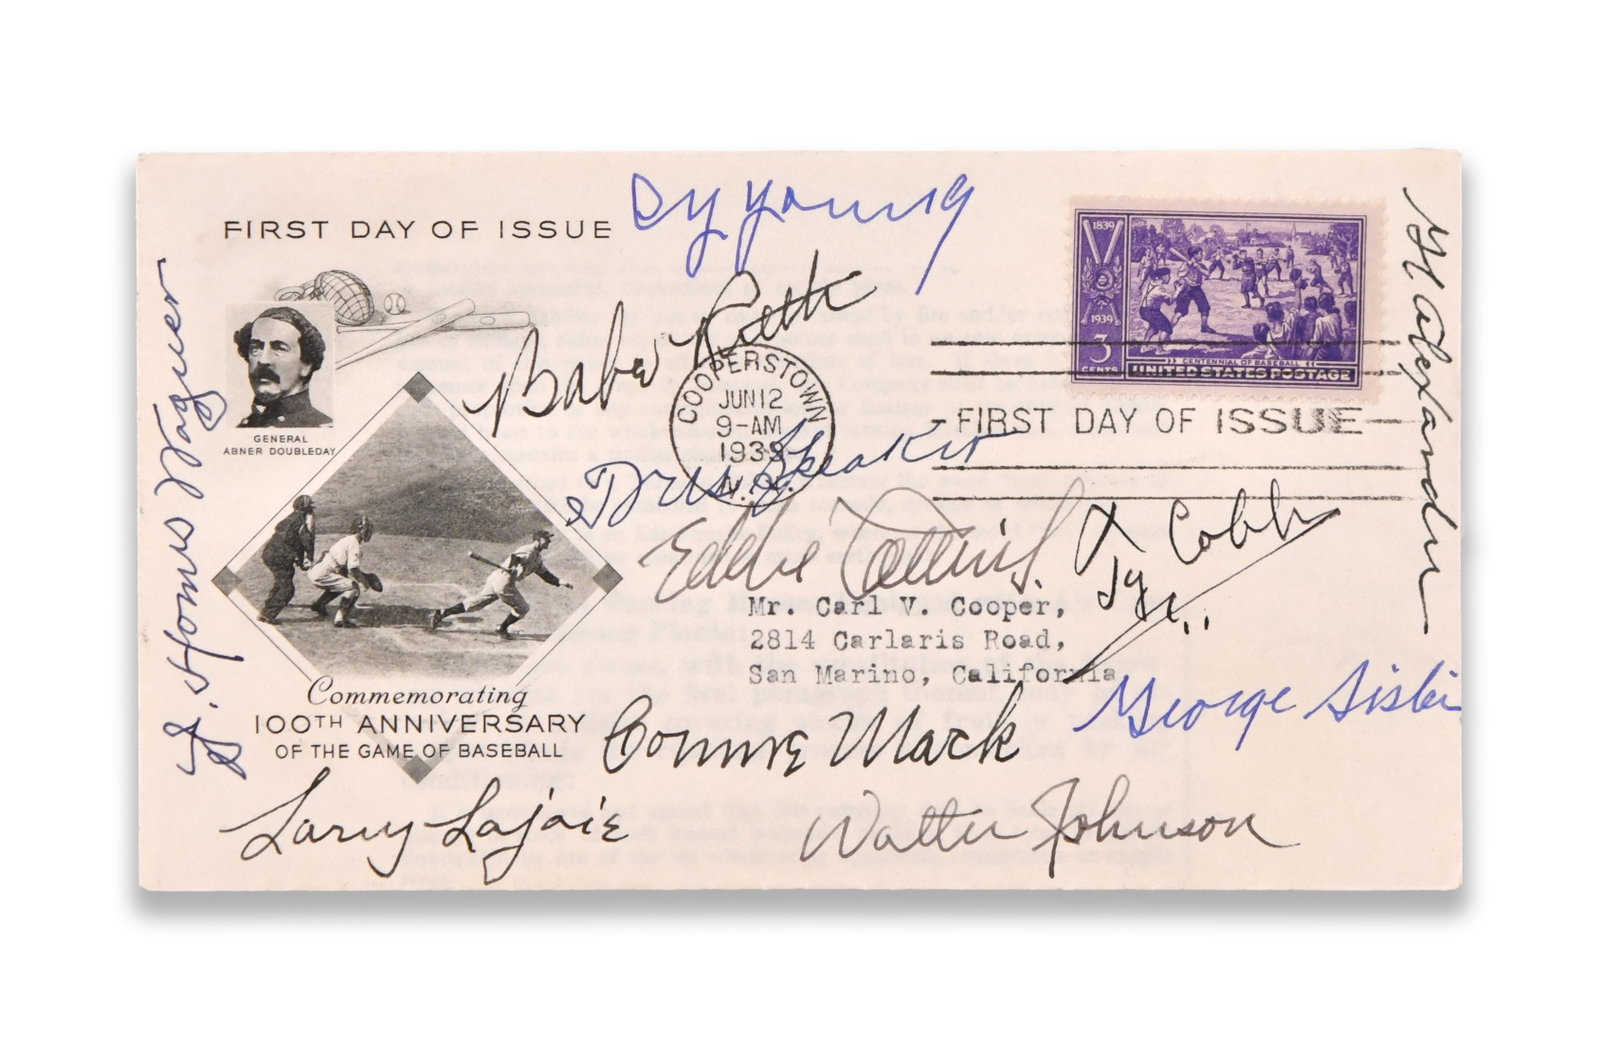 FIRST DAY OF ISSUE
Cy Young
1839
1939
3
CENTS
CENTENNIAL OF BASEBALL
UNITED STATES POSTAGE
GENERAL
ABNER DOUBLEDAY
J. Honus Wagner
Babe Ruth
COOPERSTOWN
JUN 12
9-AM
1939
N.Y.
FIRST DAY OF ISSUE
G Alexander
Tris Speaker
Eddie Collins
Ty Cobb
Mr. Carl V. Cooper,
2814 Carlaris Road,
San Marino, California
George Sisler
Commemorating
100TH ANNIVERSARY
OF THE GAME OF BASEBALL
Connie Mack
Larry Lajoie
Walter Johnson